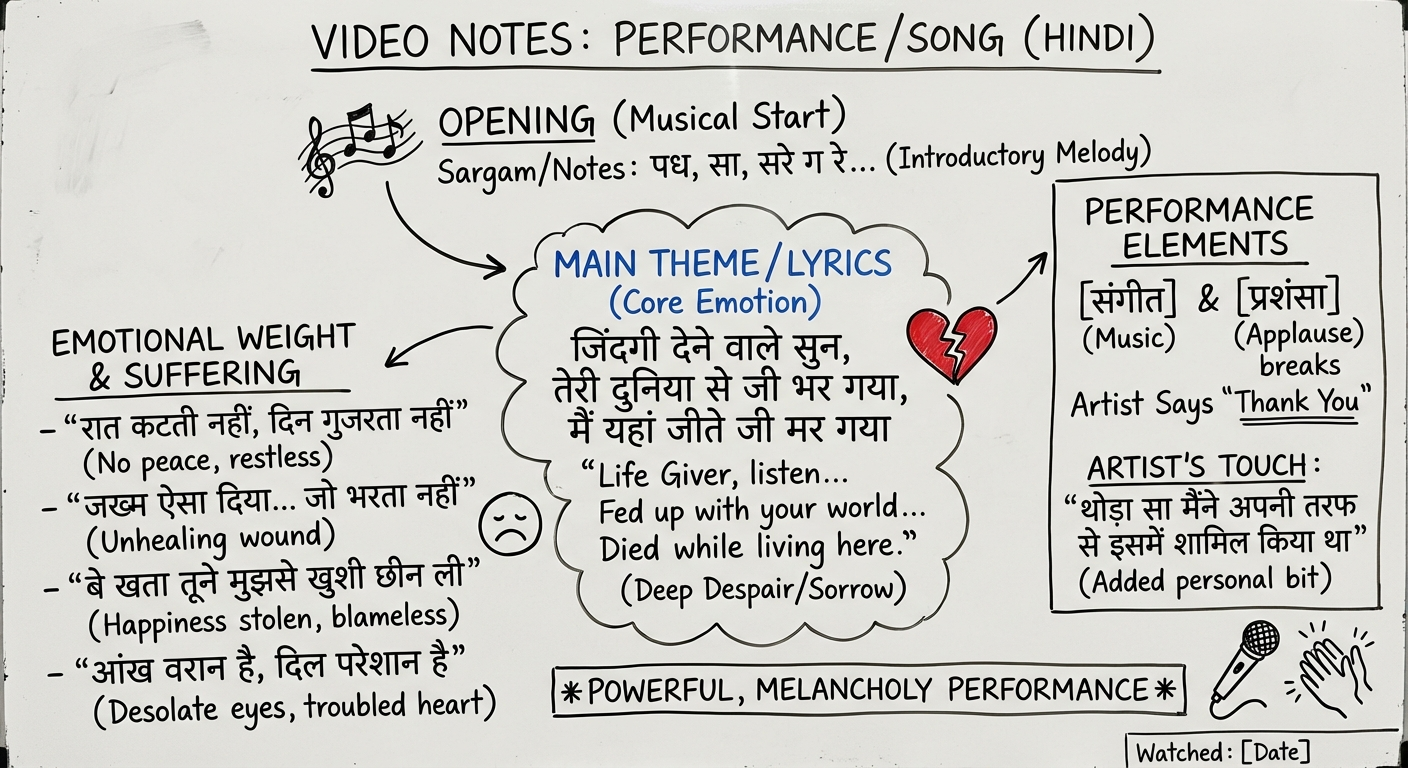 VIDEO NOTES: PERFORMANCE/SONG (HINDI)
OPENING (Musical Start)
Sargam/Notes: पध, सा, सरे ग रे... (Introductory Melody)
MAIN THEME/LYRICS
(Core Emotion)
जिंदगी देने वाले सुन,
तेरी दुनिया से जी भर गया,
मैं यहां जीते जी मर गया
"Life Giver, listen...
Fed up with your world...
Died while living here."
(Deep Despair/Sorrow)
EMOTIONAL WEIGHT
& SUFFERING
- "रात कटती नहीं, दिन गुजरता नहीं"
(No peace, restless)
- "जख्म ऐसा दिया... जो भरता नहीं"
(Unhealing wound)
- "बे खता तूने मुझसे खुशी छीन ली"
(Happiness stolen, blameless)
- "आंख वरान है, दिल परेशान है"
(Desolate eyes, troubled heart)
PERFORMANCE
ELEMENTS
[संगीत] & [प्रशंसा]
(Music) (Applause)
breaks
Artist Says "Thank You"
ARTIST'S TOUCH:
"थोड़ा सा मैंने अपनी तरफ
से इसमें शामिल किया था"
(Added personal bit)
*POWERFUL, MELANCHOLY PERFORMANCE*
Watched: [Date]